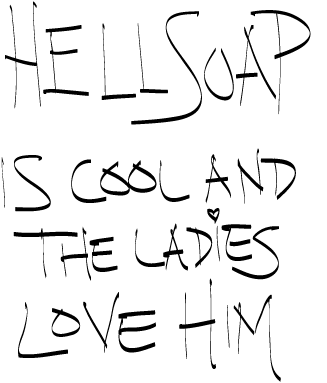 HELLSOAP
IS COOL AND
THE LADiES
LOVE HIM